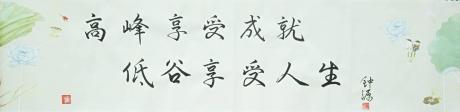 高峰享受成就
低谷享受人生